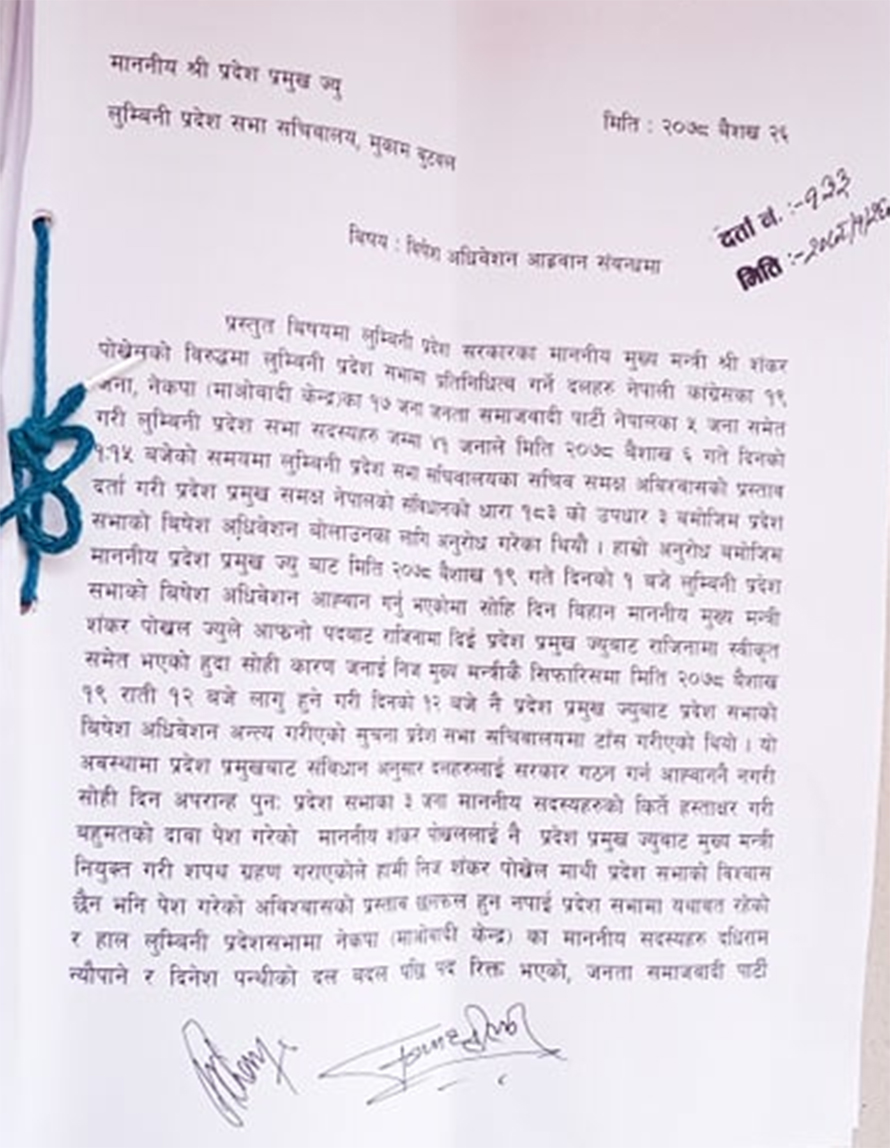 माननीय श्री प्रदेश प्रमुख ज्यु
लुम्बिनी प्रदेश सभा सचिवालय, मुकाम बुटवल
मिति : २०७८ बैशख २६
दर्ता नं. :-१३३
मिति :-
बिषय : बिषेश अधिवेशन आह्रवान संवन्धमा
प्रस्तुत बिषयमा लुम्बिनी प्रदेश सरकारका माननीय मुख्य मन्त्री श्री शंकर
पोखेलको विरुद्धमा लुम्बिनी प्रदेश सभामा प्रतिनिधित्व गर्ने दलहरु नेपाली कांग्रेसका १९
जना, नेकपा (माओवादी केन्द्र)का १७ जना जनता समाजवादी पार्टी नेपालका ५ जना समेत
गरी लुम्बिनी प्रदेश सभा सदस्यहरु जम्मा ४१ जनाले मिति २०७८ बैशाख ६ गते दिनको
१:१५ बजेको समयमा लुम्बिनी प्रदेश सभा सचिवालयका सचिव समक्ष अबिश्वासको प्रस्ताव
दर्ता गरी प्रदेश प्रमुख समक्ष नेपालको संविधानको धारा १८३ को उपधार ३ बमोजिम प्रदेश
सभाको बिषेश अधिवेशन बोलाउनका लागि अनुरोध गरेका थियौ । हाम्रो अनुरोध बमोजिम
माननीय प्रदेश प्रमुख ज्यु बाट मिति २०७८ बैशाख १९ गते दिनको १ बजे लुम्बिनी प्रदेश
सभाको बिषेश अधिवेशन आह्वान गर्नु भएकोमा सोहि दिन बिहान माननीय मुख्य मन्त्री
शंकर पोखल ज्युले आफनो पदबाट राजिनामा दिई प्रदेश प्रमुख ज्युबाट राजिनामा स्वीकृत
समेत भएको हुदा सोही कारण जनाई निज मुख्य मन्त्रीकै सिफारिसमा मिति २०७८ बैशाख
१९ राती १२ बजे लागु हुने गरी दिनको १२ बजे नै प्रदेश प्रमुख ज्युबाट प्रदेश सभाको
बिषेश अधिवेशन अन्त्य गरीएको सुचना प्रदेश सभा सचिवालयमा टाँस गरीएको थियो । यो
अवस्थामा प्रदेश प्रमुखबाट संविधान अनुसार दलहरुलाई सरकार गठन गर्न आह्वाननै नगरी
सोही दिन अपरान्ह पुन: प्रदेश सभाका ३ जना माननीय सदस्यहरुको किर्ते हस्ताक्षर गरी
बहुमतको दाबा पेश गरेको माननीय शंकर पोखेललाई नै प्रदेश प्रमुख ज्युबाट मुख्य मन्त्री
नियुक्त गरी शपथ ग्रहण गराएकोले हामी निज शंकर पोखेल माथी प्रदेश सभाको विश्वास
छैन भनि पेश गरेको अबिश्वासको प्रस्ताव छलफल हुन नपाई प्रदेश सभामा यथावत रहेको
र हाल लुम्बिनी प्रदेशसभामा नेकपा (माओवादी केन्द्र) का माननीय सदस्यहरु दधिराम
न्यौपाने र दिनेश पन्थीको दल बदल पछि पद रिक्त भएको, जनता समाजबादी पार्टी